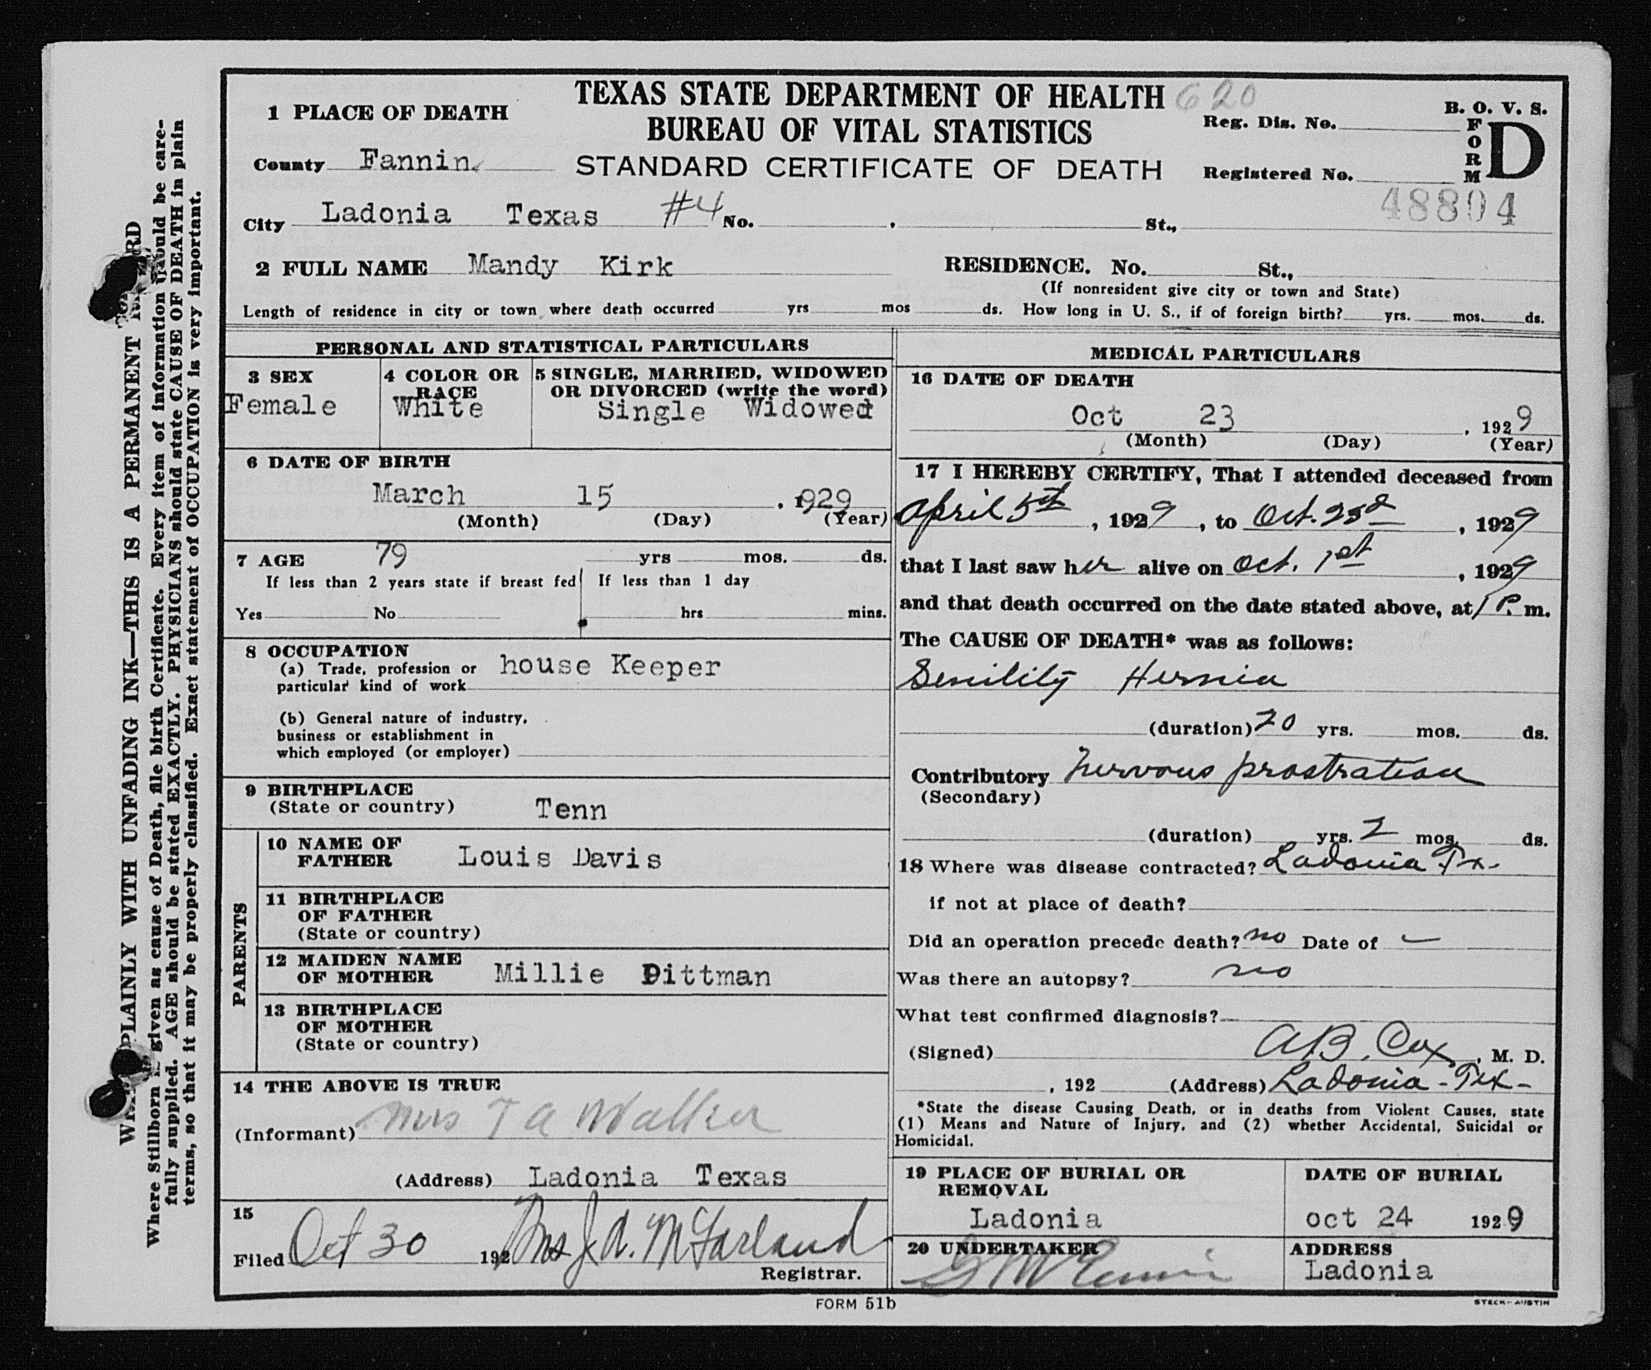 TEXAS STATE DEPARTMENT OF HEALTH 620
BUREAU OF VITAL STATISTICS
STANDARD CERTIFICATE OF DEATH
B. O. V. S.
FORM D
Reg. Dis. No.
Registered No.
48804
1 PLACE OF DEATH
County Fannin
City Ladonia Texas #4 No. , St.,
2 FULL NAME Mandy Kirk RESIDENCE. No. St.,
(If nonresident give city or town and State)
Length of residence in city or town where death occurred yrs mos ds. How long in U. S., if of foreign birth? yrs. mos. ds.
PERSONAL AND STATISTICAL PARTICULARS
3 SEX
Female
4 COLOR OR RACE
White
5 SINGLE, MARRIED, WIDOWED
OR DIVORCED (write the word)
Single Widowed
6 DATE OF BIRTH
March 15 , 1929
(Month) (Day) (Year)
7 AGE 79 yrs mos. ds.
If less than 2 years state if breast fed If less than 1 day
Yes No hrs mins.
8 OCCUPATION
(a) Trade, profession or
particular kind of work house Keeper
(b) General nature of industry,
business or establishment in
which employed (or employer)
9 BIRTHPLACE
(State or country) Tenn
PARENTS
10 NAME OF
FATHER Louis Davis
11 BIRTHPLACE
OF FATHER
(State or country)
12 MAIDEN NAME
OF MOTHER Millie Pittman
13 BIRTHPLACE
OF MOTHER
(State or country)
14 THE ABOVE IS TRUE
(Informant) Mrs T A Walker
(Address) Ladonia Texas
15
Filed Oct 30 192 Mrs J. A. McFarland
Registrar.
MEDICAL PARTICULARS
16 DATE OF DEATH
Oct 23 , 1929
(Month) (Day) (Year)
17 I HEREBY CERTIFY, That I attended deceased from
April 5th , 1929 , to Oct. 23d , 1929
that I last saw her alive on Oct. 1st , 1929
and that death occurred on the date stated above, at 1 P. m.
The CAUSE OF DEATH* was as follows:
Senility Hernia
(duration) 20 yrs. mos. ds.
Contributory nervous prostration
(Secondary)
(duration) yrs. 2 mos. ds.
18 Where was disease contracted? Ladonia Tx.
if not at place of death?
Did an operation precede death? no Date of –
Was there an autopsy? no
What test confirmed diagnosis?
(Signed) A B. Cox , M. D.
, 192 (Address) Ladonia - Tex -
*State the disease Causing Death, or in deaths from Violent Causes, state
(1) Means and Nature of Injury, and (2) whether Accidental, Suicidal or
Homicidal.
19 PLACE OF BURIAL OR
REMOVAL
Ladonia
DATE OF BURIAL
oct 24 1929
20 UNDERTAKER
ADDRESS
Ladonia
FORM 51b
STECK-AUSTIN
PLAINLY WITH UNFADING INK—THIS IS A PERMANENT
Where Stillborn is given as cause of Death, file birth Certificate. Every item of information should be care-
fully supplied. AGE should be stated EXACTLY. PHYSICIANS should state CAUSE OF DEATH in plain
terms, so that it may be properly classified. Exact statement of OCCUPATION is very important.